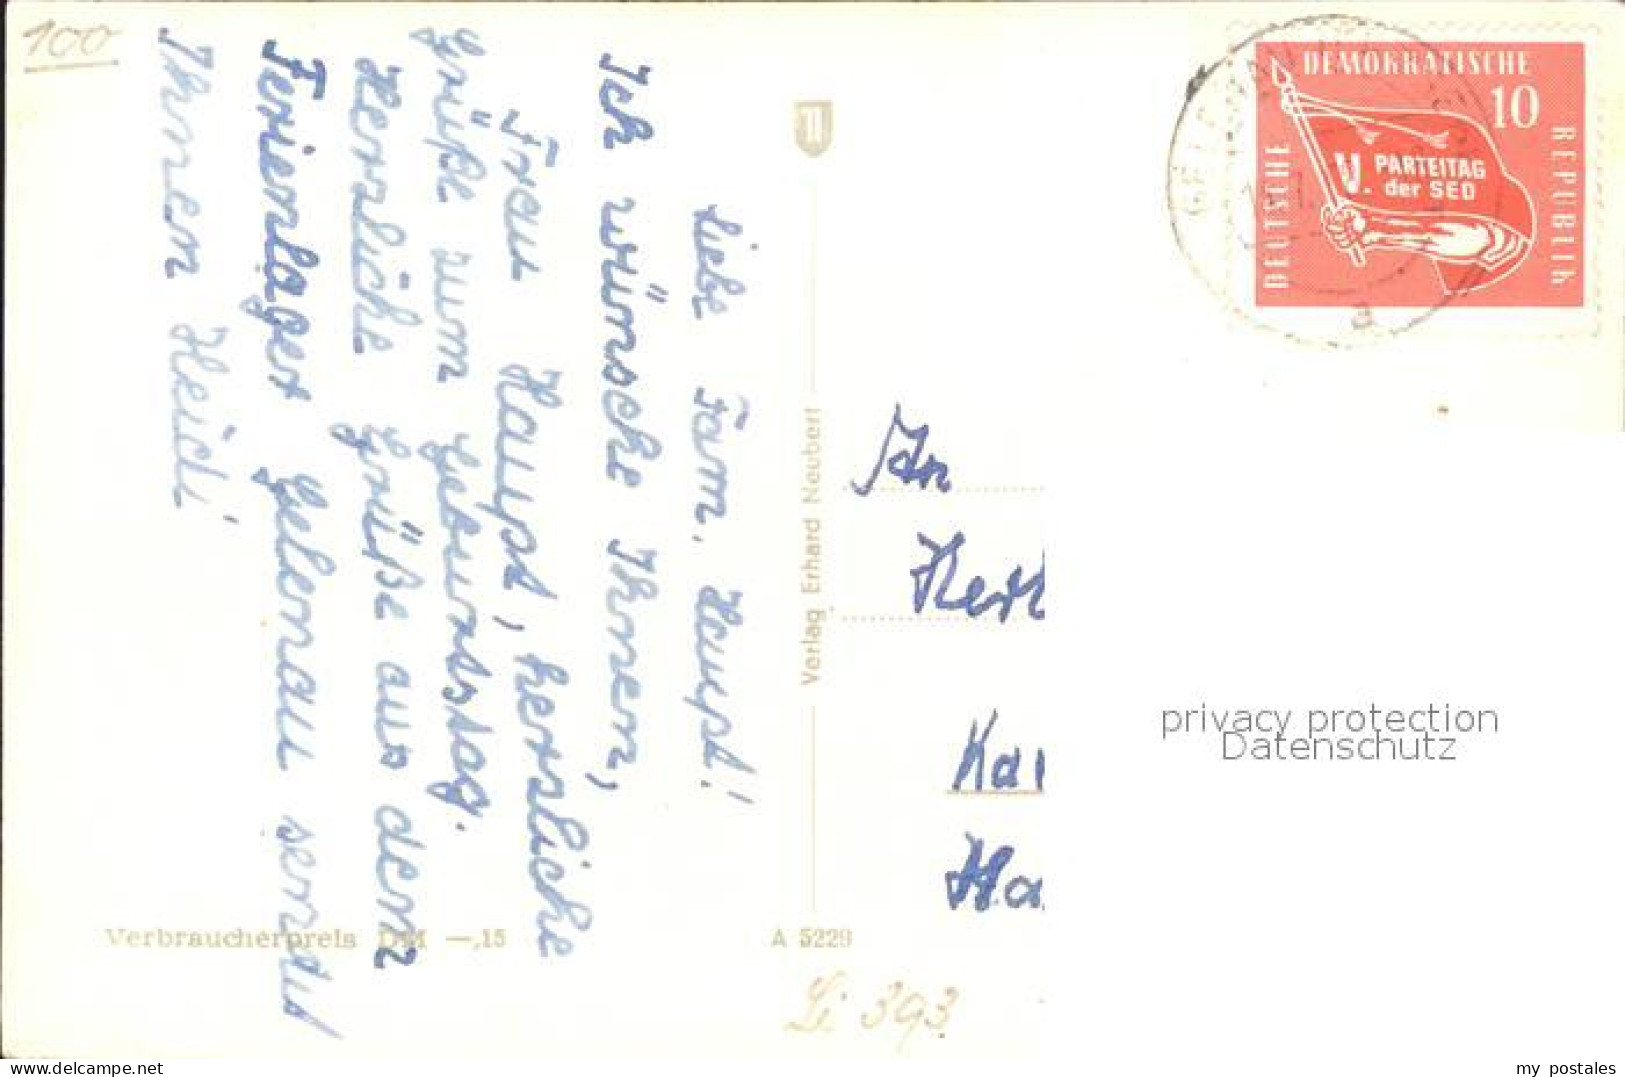 100
Liebe Fam. Haupt!
Ich wünsche Ihnen,
Frau Haupt, herzliche
Grüße zum Geburtstag.
Herzliche Grüße aus dem
Ferienlager Gelenau sendet
Ihnen Heidi
Verbraucherpreis DM —,15
A 5229
Verlag Erhard Neubert
Li 393
DEUTSCHE
DEMOKRATISCHE
REPUBLIK
10
V. PARTEITAG
der SED
An
privacy protection
Datenschutz
www.delcampe.net
my_postales